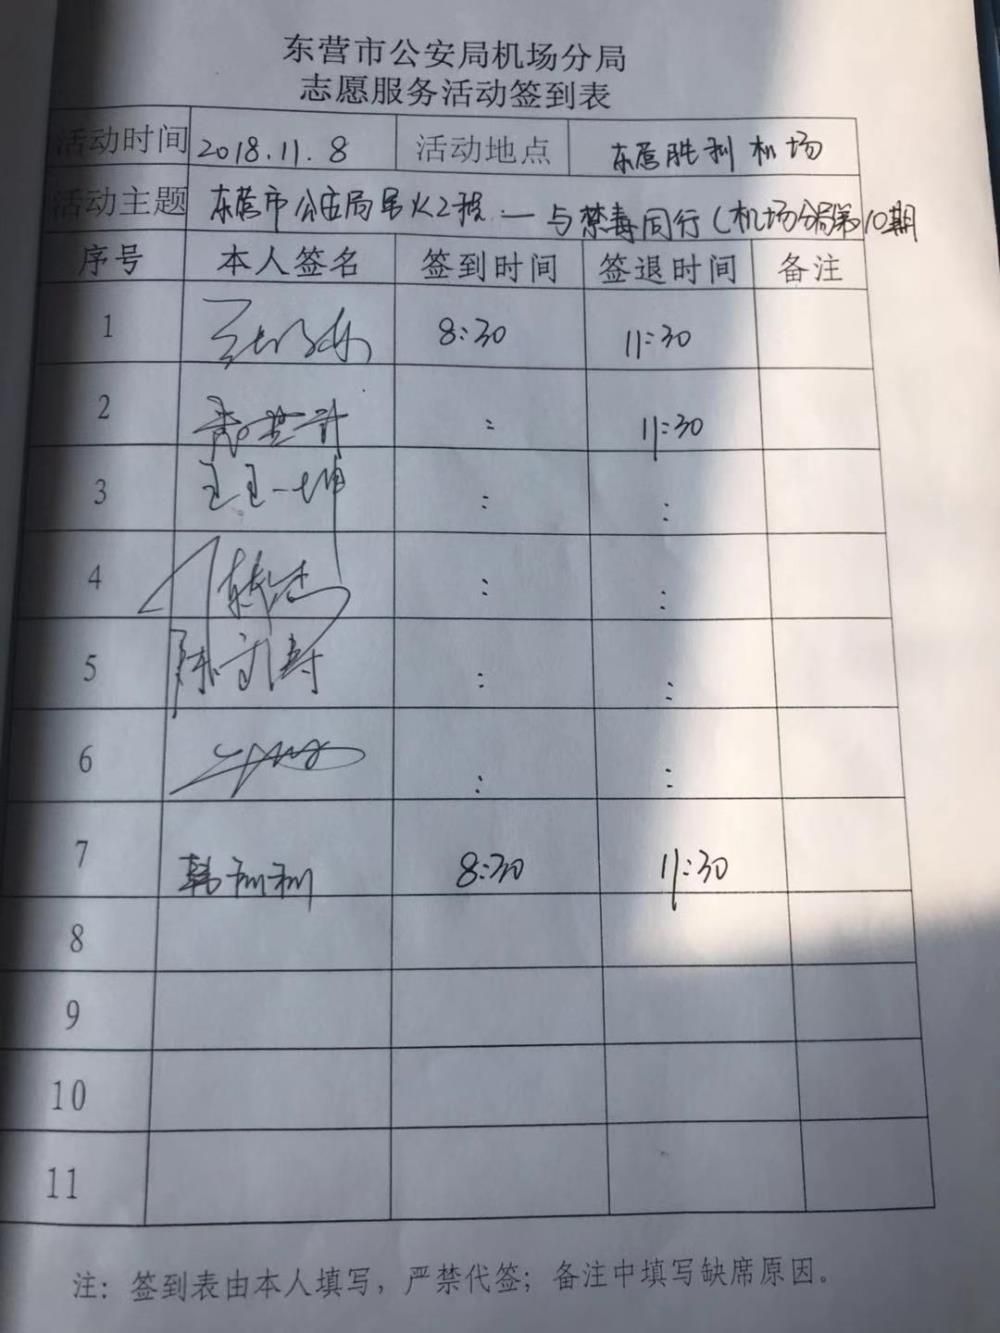 东营市公安局机场分局
志愿服务活动签到表
活动时间 2018.11.8 活动地点 东营胜利机场
活动主题 东营市公安局星火工程 — 与禁毒同行(机场分局第10期
序号 本人签名 签到时间 签退时间 备注
1 8:30 11:30
2 : 11:30
3 王玉坤 : :
4 : :
5 陈 : :
6 : :
7 韩 8:30 11:30
8
9
10
11
注：签到表由本人填写，严禁代签；备注中填写缺席原因。